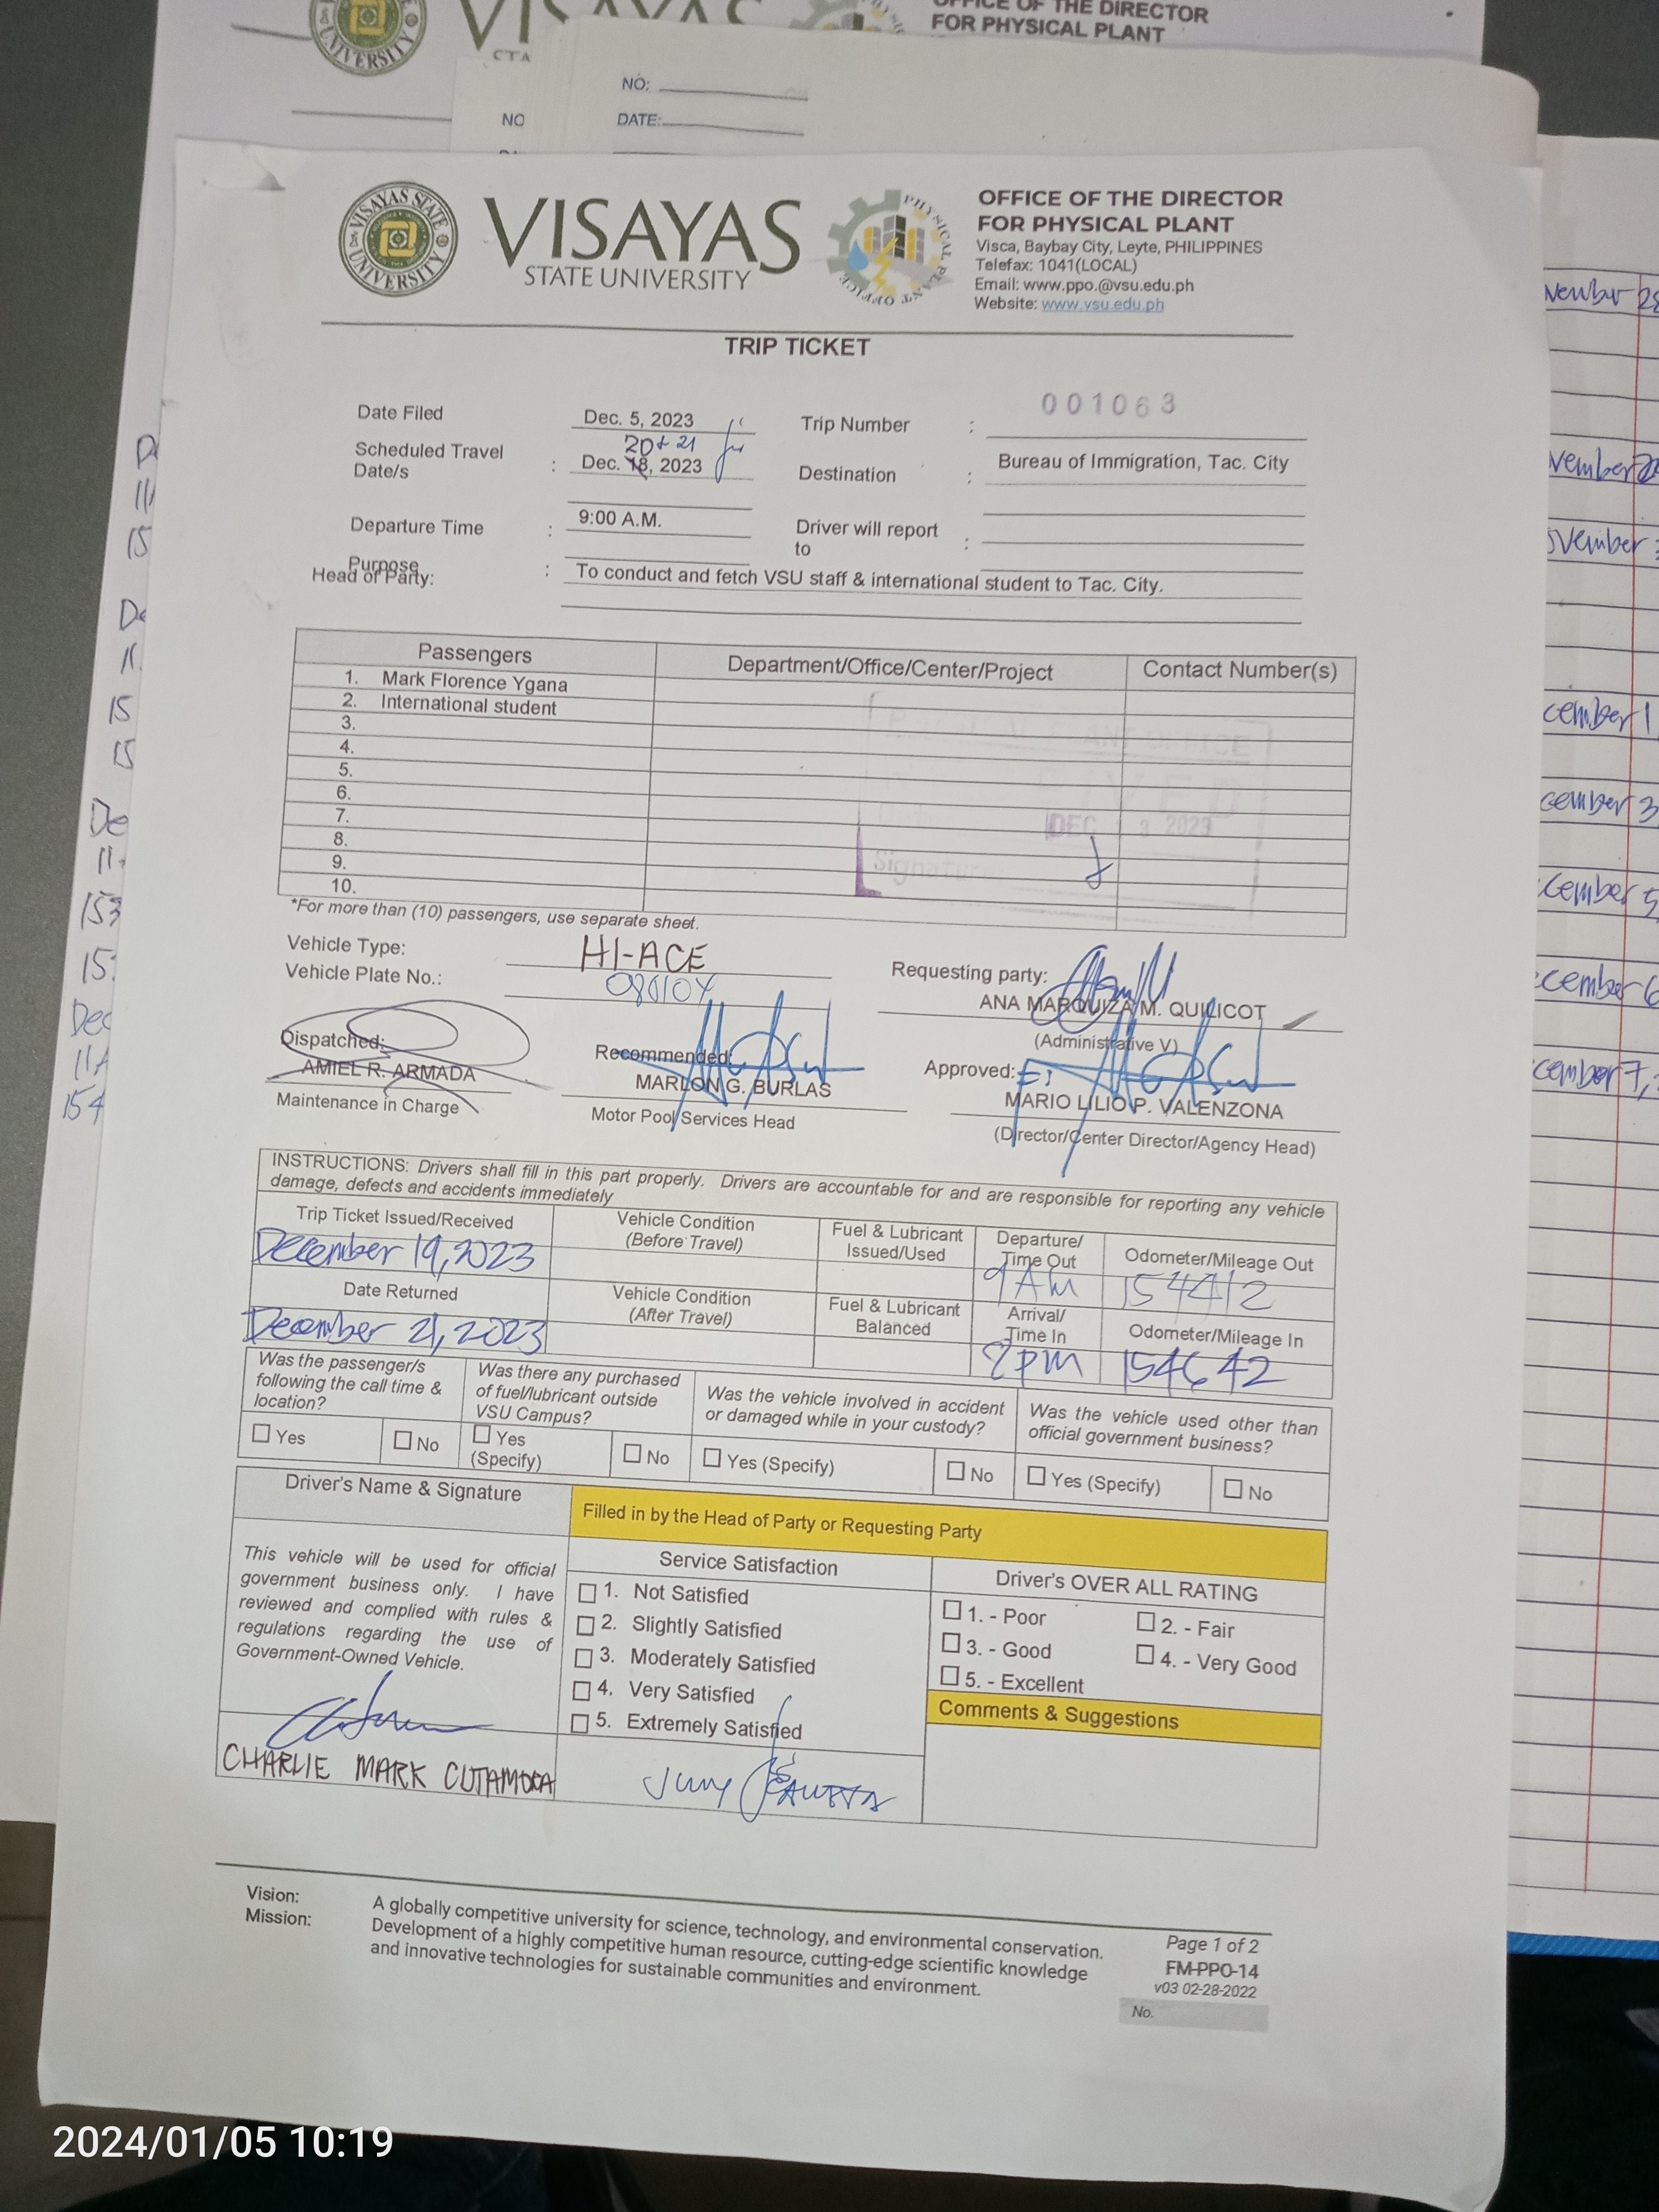 OFFICE OF THE DIRECTOR
FOR PHYSICAL PLANT
NO:
DATE:
NO
VISAYAS STATE UNIVERSITY
VISAYAS
STATE UNIVERSITY
PHYSICAL PLANT OFFICE
OFFICE OF THE DIRECTOR
FOR PHYSICAL PLANT
Visca, Baybay City, Leyte, PHILIPPINES
Telefax: 1041(LOCAL)
Email: www.ppo.@vsu.edu.ph
Website: www.vsu.edu.ph
TRIP TICKET
Date Filed Dec. 5, 2023 Trip Number : 001063
20 & 21
Scheduled Travel Date/s : Dec. 18, 2023 Destination : Bureau of Immigration, Tac. City
Departure Time : 9:00 A.M. Driver will report to :
Purpose : To conduct and fetch VSU staff & international student to Tac. City.
Head of Party:
Passengers Department/Office/Center/Project Contact Number(s)
1. Mark Florence Ygana
2. International student
3.
4.
5.
6.
7.
8.
9.
10.
PLANT OFFICE
DEC 13 2023
Signature
*For more than (10) passengers, use separate sheet.
Vehicle Type: HI-ACE
Vehicle Plate No.:
Requesting party:
ANA MARQUIZA M. QUILICOT
(Administrative V)
Dispatched:
AMIEL R. ARMADA
Maintenance in Charge
Recommended:
MARLON G. BURLAS
Motor Pool Services Head
Approved:
MARIO LILIO P. VALENZONA
(Director/Center Director/Agency Head)
INSTRUCTIONS: Drivers shall fill in this part properly. Drivers are accountable for and are responsible for reporting any vehicle
damage, defects and accidents immediately
Trip Ticket Issued/Received Vehicle Condition (Before Travel) Fuel & Lubricant Issued/Used Departure/ Time Out Odometer/Mileage Out
December 19, 2023 9AM 154412
Date Returned Vehicle Condition (After Travel) Fuel & Lubricant Balanced Arrival/ Time In Odometer/Mileage In
December 21, 2023 2pm 154642
Was the passenger/s following the call time & location?
Yes No
Was there any purchased of fuel/lubricant outside VSU Campus?
Yes (Specify) No
Was the vehicle involved in accident or damaged while in your custody?
Yes (Specify) No
Was the vehicle used other than official government business?
Yes (Specify) No
Driver's Name & Signature
Filled in by the Head of Party or Requesting Party
This vehicle will be used for official
government business only. I have
reviewed and complied with rules &
regulations regarding the use of
Government-Owned Vehicle.
CHARLIE MARK CUTAMORA
Service Satisfaction
1. Not Satisfied
2. Slightly Satisfied
3. Moderately Satisfied
4. Very Satisfied
5. Extremely Satisfied
Driver's OVER ALL RATING
1. - Poor 2. - Fair
3. - Good 4. - Very Good
5. - Excellent
Comments & Suggestions
Vision: A globally competitive university for science, technology, and environmental conservation.
Mission: Development of a highly competitive human resource, cutting-edge scientific knowledge
and innovative technologies for sustainable communities and environment.
Page 1 of 2
FM-PPO-14
v03 02-28-2022
No.
2024/01/05 10:19